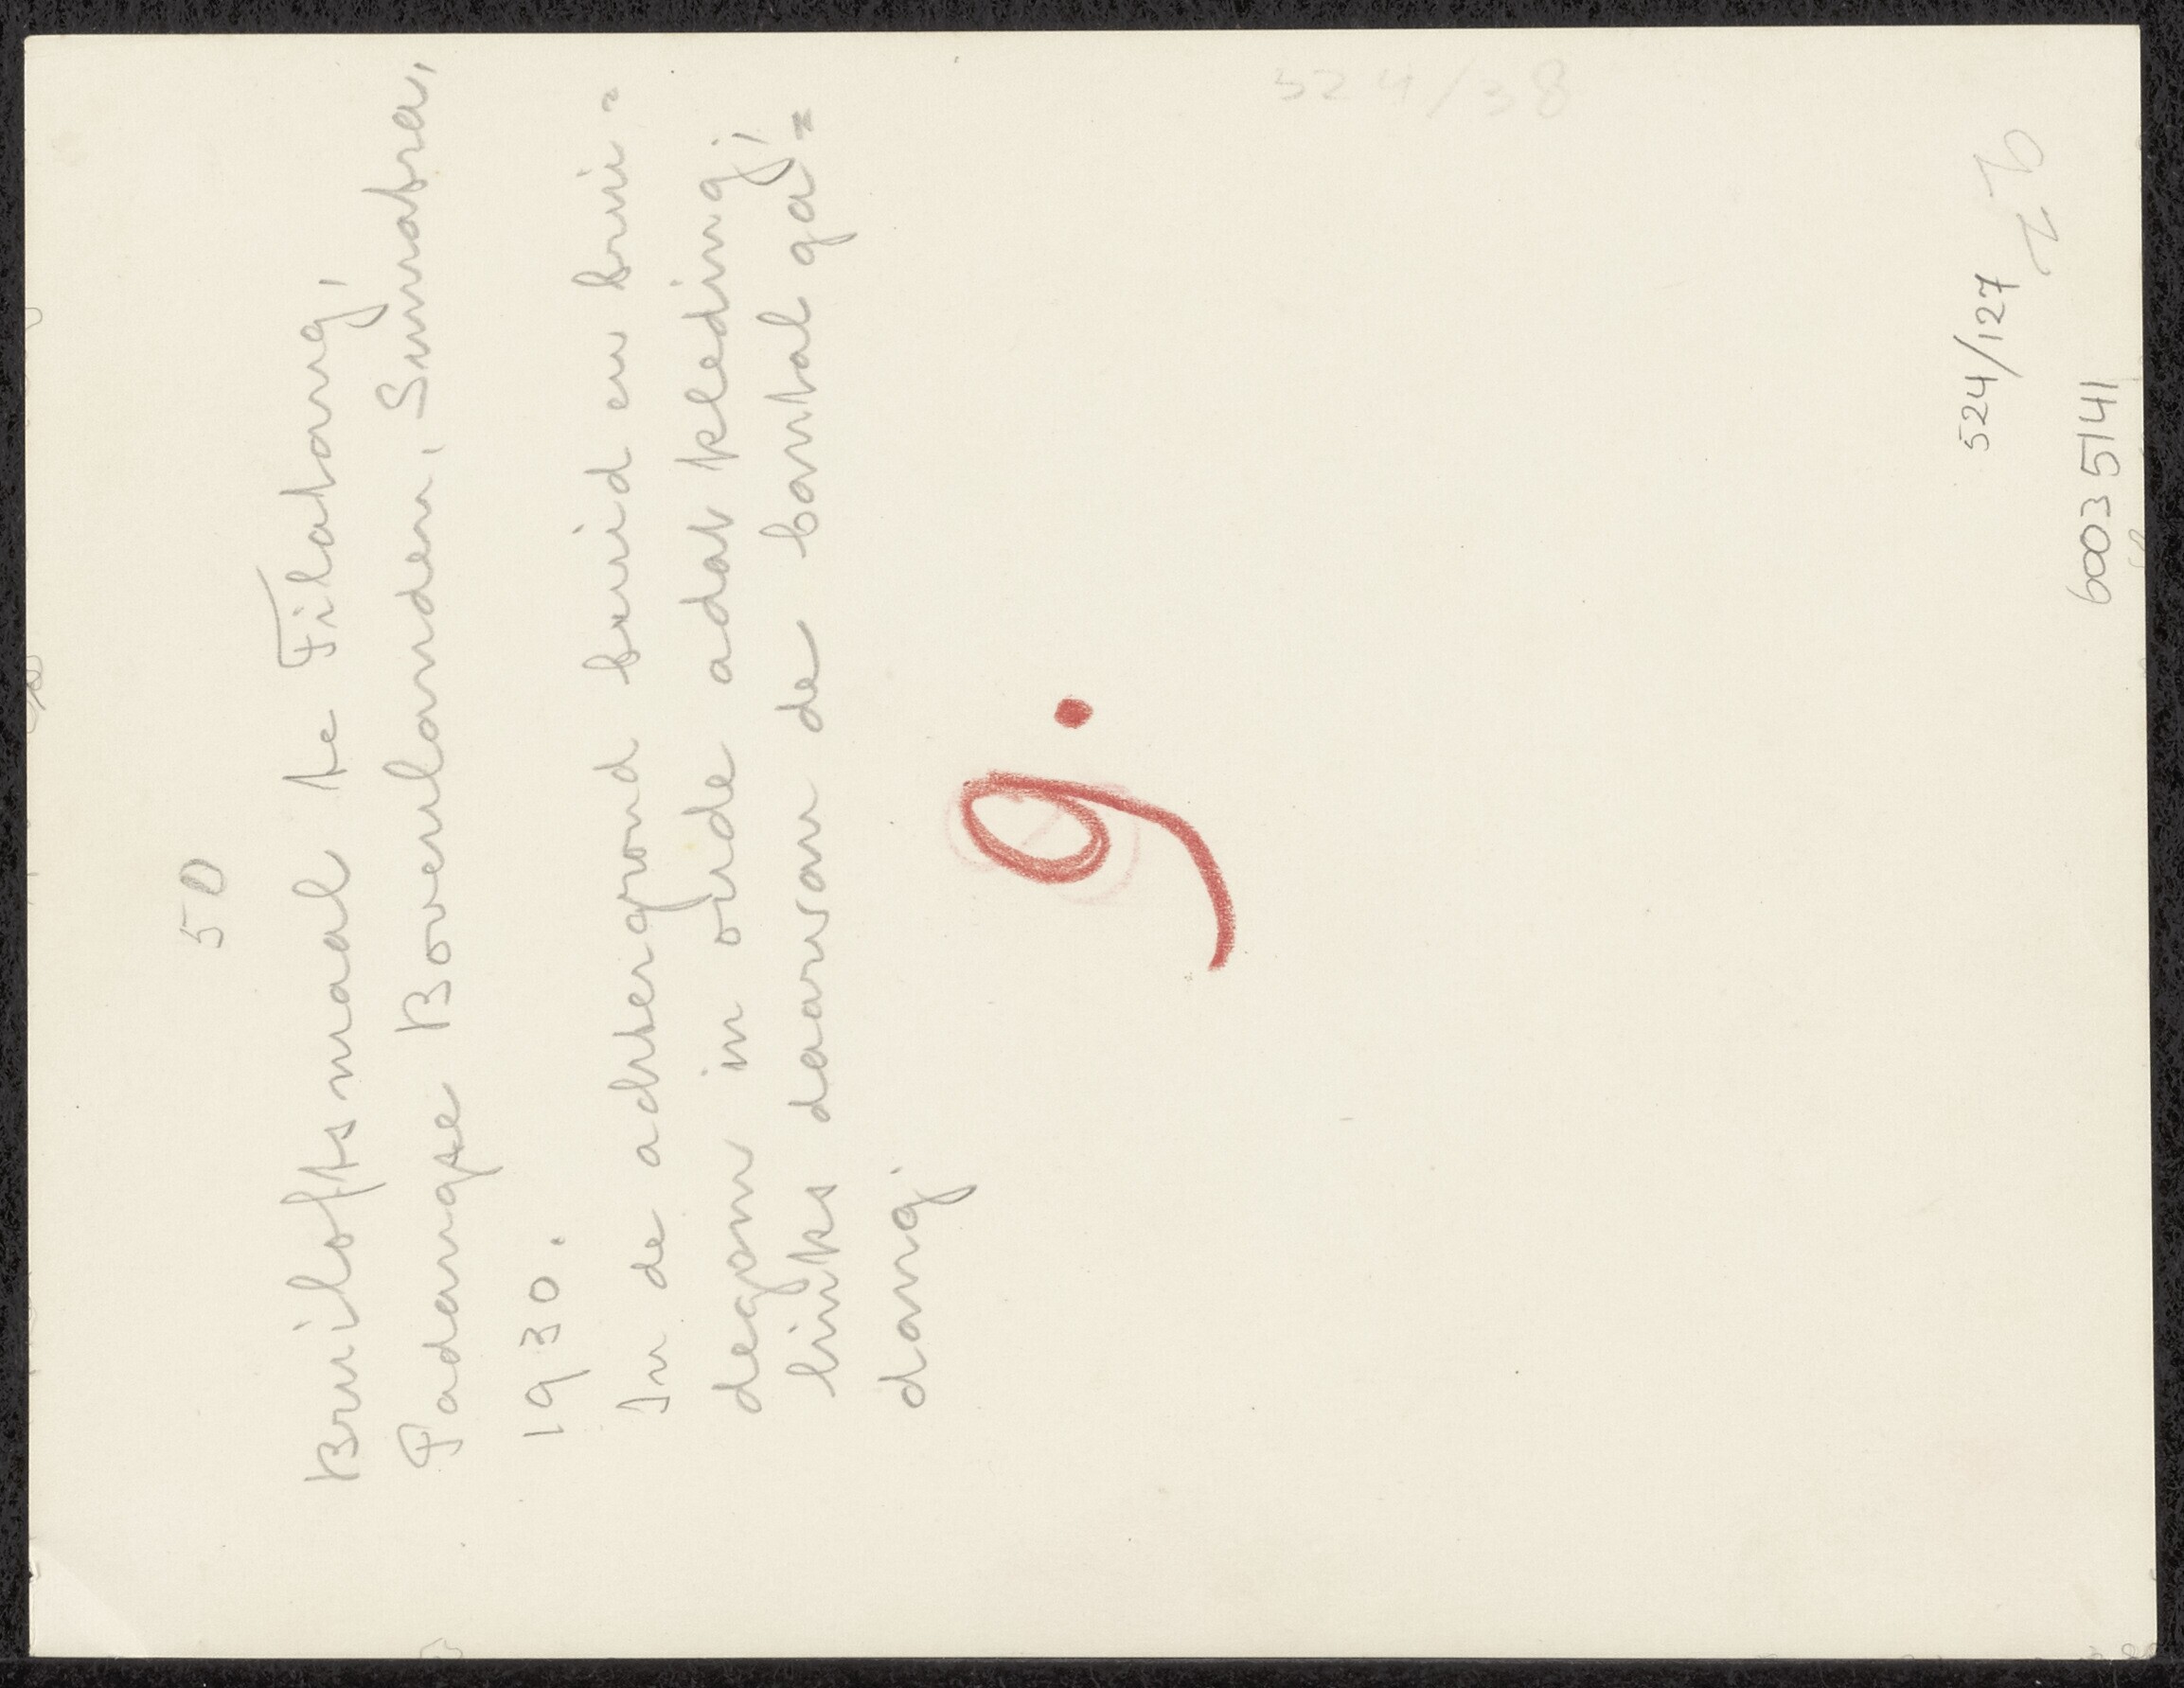 50
Bruiloftsmaal te Tilatang,
Padangse Bovenlanden, Sumatra,
1930.
In de achtergrond bruid en brui=
degom in oude adat kleding;
links daarvan de bantal ga=
dang.
9.
524/38
524/127
60035141